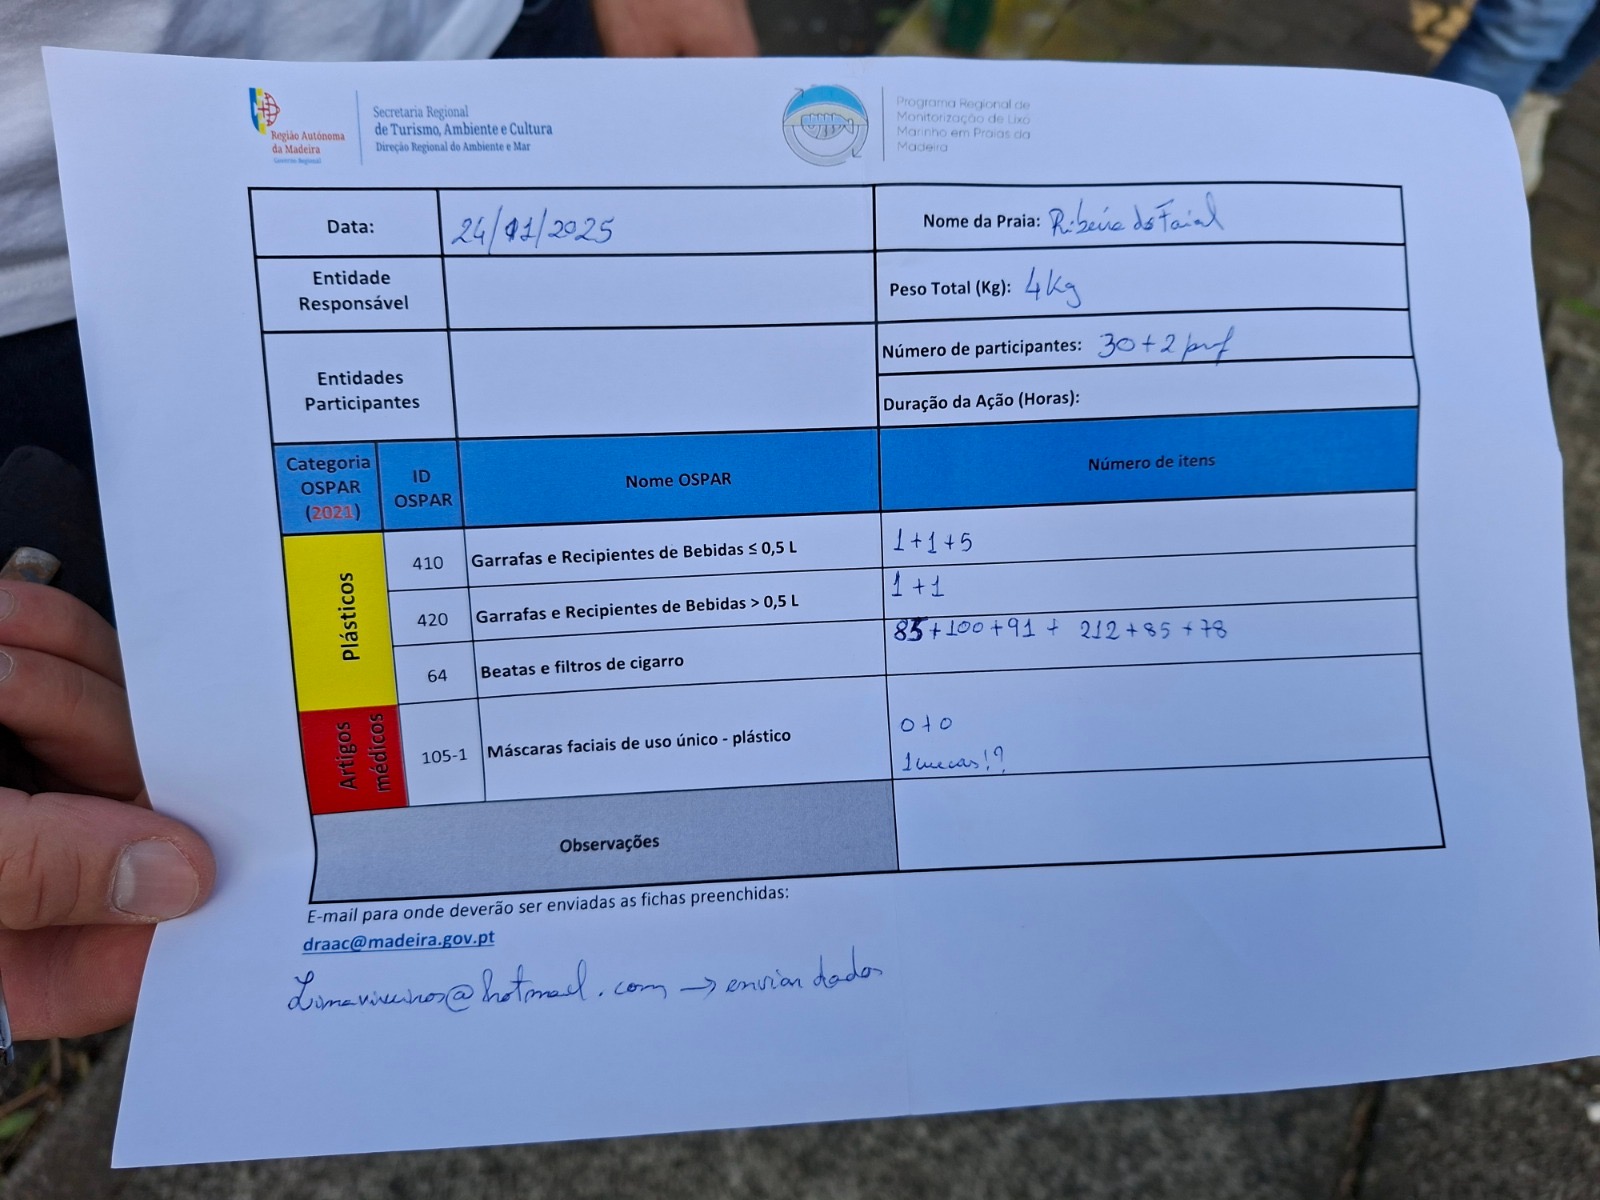 Região Autónoma
da Madeira
Governo Regional
Secretaria Regional
de Turismo, Ambiente e Cultura
Direção Regional do Ambiente e Mar
Programa Regional de
Monitorização de Lixo
Marinho em Praias da
Madeira
Data: 24/11/2025
Nome da Praia: Ribeira do Faial
Entidade
Responsável
Peso Total (Kg): 4kg
Número de participantes: 30+2 prof
Entidades
Participantes
Duração da Ação (Horas):
Categoria
OSPAR
(2021)
ID
OSPAR
Nome OSPAR
Número de itens
Plásticos
410 Garrafas e Recipientes de Bebidas ≤ 0,5 L 1+1+5
420 Garrafas e Recipientes de Bebidas > 0,5 L 1+1
64 Beatas e filtros de cigarro 85+100+91+ 212+85+78
Artigos
médicos
105-1 Máscaras faciais de uso único - plástico 0+0
!?
Observações
E-mail para onde deverão ser enviadas as fichas preenchidas:
draac@madeira.gov.pt
@hotmail.com → enviar dados